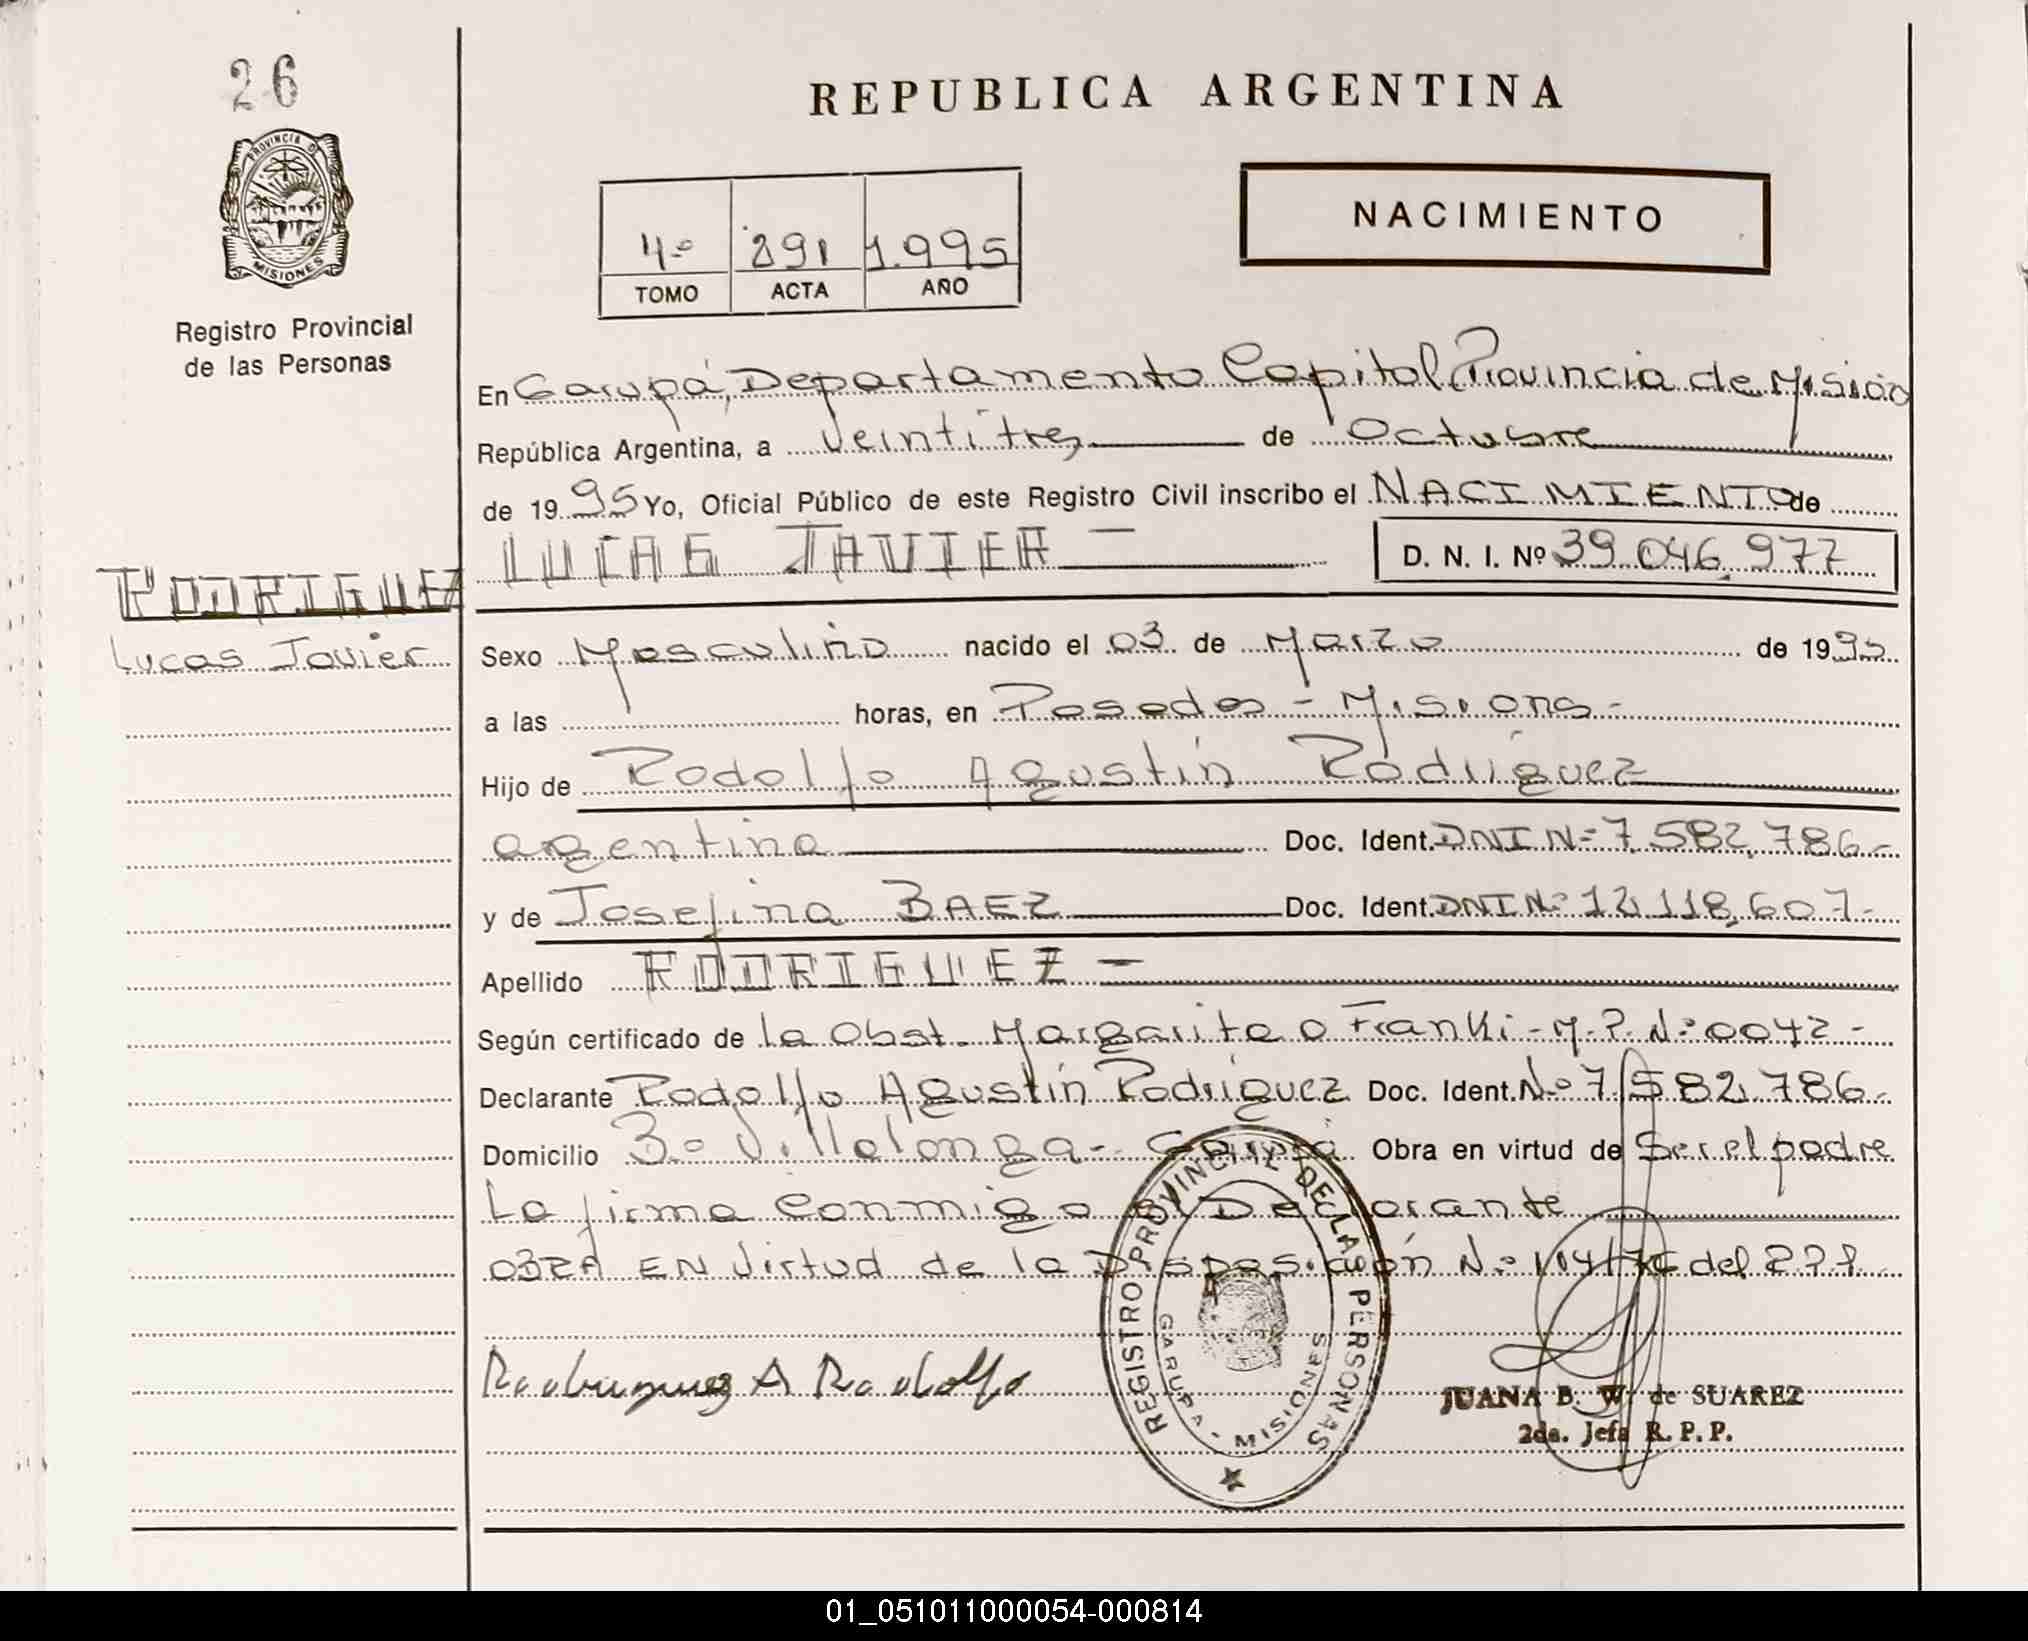 26
REPUBLICA ARGENTINA
PROVINCIA D
MISIONES
Registro Provincial
de las Personas
4º 291 1.995
TOMO ACTA AÑO
NACIMIENTO
En Garupá, Departamento Capital, Provincia de Mision
República Argentina, a veintitres de Octubre
de 19 95 Yo, Oficial Público de este Registro Civil inscribo el NACIMIENTO de
LUCAS JAVIER - D. N. I. Nº 39.046.977
RODRIGUEZ
Lucas Javier
Sexo Masculino nacido el 03 de Marzo de 1995
a las horas, en Posadas - Misiones -
Hijo de Rodolfo Agustín Rodríguez
argentina Doc. Ident. DNI Nº 7.582.786.-
y de Josefina BAEZ Doc. Ident. DNI Nº 12.118.607.-
Apellido RODRIGUEZ -
Según certificado de la Obst. Margarita O Franki - M.P. Nº 0042 -
Declarante Rodolfo Agustín Rodríguez Doc. Ident. Nº 7.582.786.-
Domicilio Bº Villalonga - Garupá Obra en virtud de Ser el padre
La firma conmigo el Declarante
OBRA EN Virtud de la Disposición Nº 114/76 del
Rodriguez A Rodolfo
REGISTRO PROVINCIAL DE LAS PERSONAS
GARUPA - MISIONES
JUANA B. W. de SUAREZ
2da. Jefa R. P. P.
01_051011000054-000814